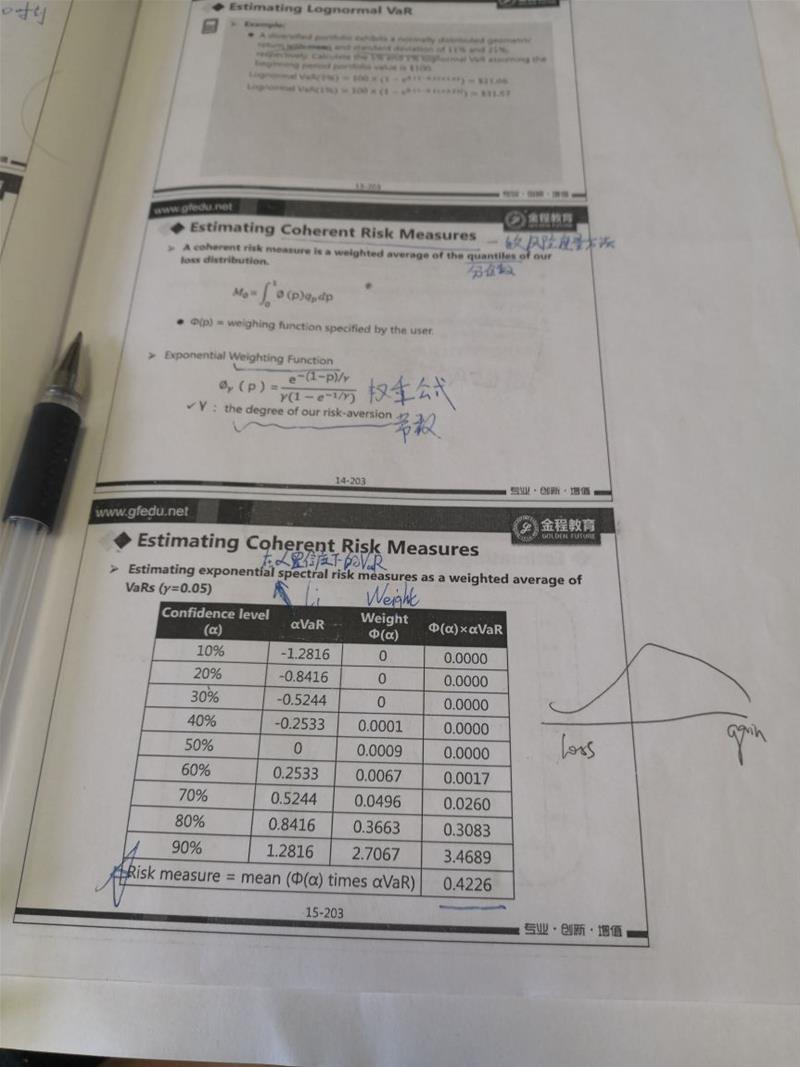 Estimating Lognormal VaR
Example:
A diversified portfolio exhibits a normally distributed geometric
return with mean and standard deviation of 11% and 21%,
respectively. Calculate the 5% and 1% lognormal VaR assuming the
beginning period portfolio value is $100.
13-203
专业·创新·增值
www.gfedu.net
金程教育
Estimating Coherent Risk Measures
A coherent risk measure is a weighted average of the quantiles of our
loss distribution.
分位数
Mø=∫₀¹ø(p)qₚdp
Φ(p) = weighing function specified by the user.
Exponential Weighting Function
øᵧ(p)=e^-(1-p)/γ / γ(1-e^-1/γ) 权重公式
✓γ: the degree of our risk-aversion 常数
14-203
专业·创新·增值
www.gfedu.net
金程教育
GOLDEN FUTURE
Estimating Coherent Risk Measures
在α置信度下的VaR
Estimating exponential spectral risk measures as a weighted average of
VaRs (γ=0.05)
Li Weight
Confidence level (α) αVaR Weight Φ(α) Φ(α)×αVaR
10% -1.2816 0 0.0000
20% -0.8416 0 0.0000
30% -0.5244 0 0.0000
40% -0.2533 0.0001 0.0000
50% 0 0.0009 0.0000
60% 0.2533 0.0067 0.0017
70% 0.5244 0.0496 0.0260
80% 0.8416 0.3663 0.3083
90% 1.2816 2.7067 3.4689
Risk measure = mean (Φ(α) times αVaR) 0.4226
loss gain
15-203
专业·创新·增值